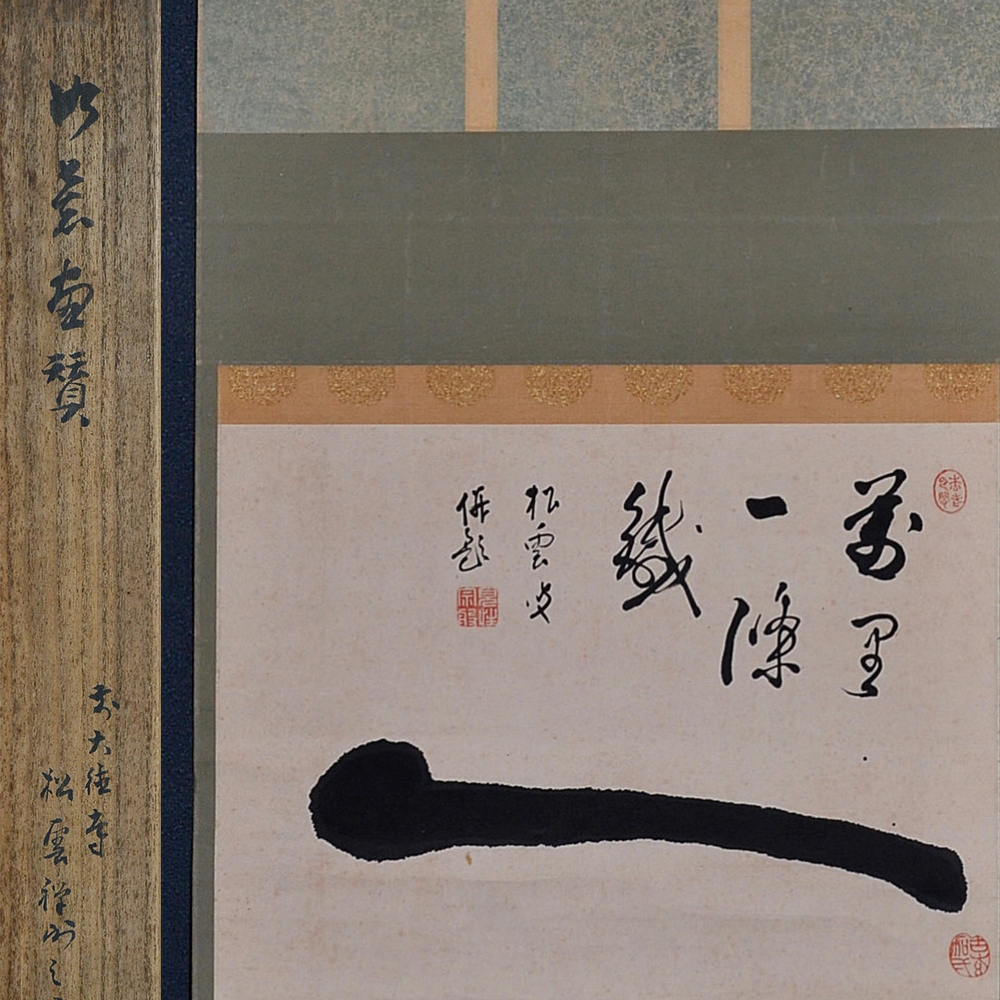 萬里
一條
鐵
松雲叟
併題
如意画賛
前大徳寺
松雲禅師之